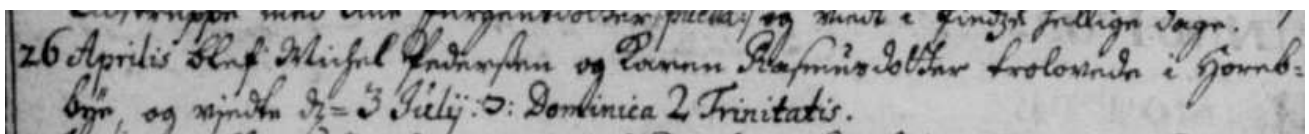 med Ane Jürgensdotter og viedt i Pindze hellige dage.
26 Aprilis blef Michel Pedersen og Karen Rasmusdotter trolovede i Horeb=
bÿe, og viedte d= 3 Julij :ɔ: Dominica 2 Trinitatis.